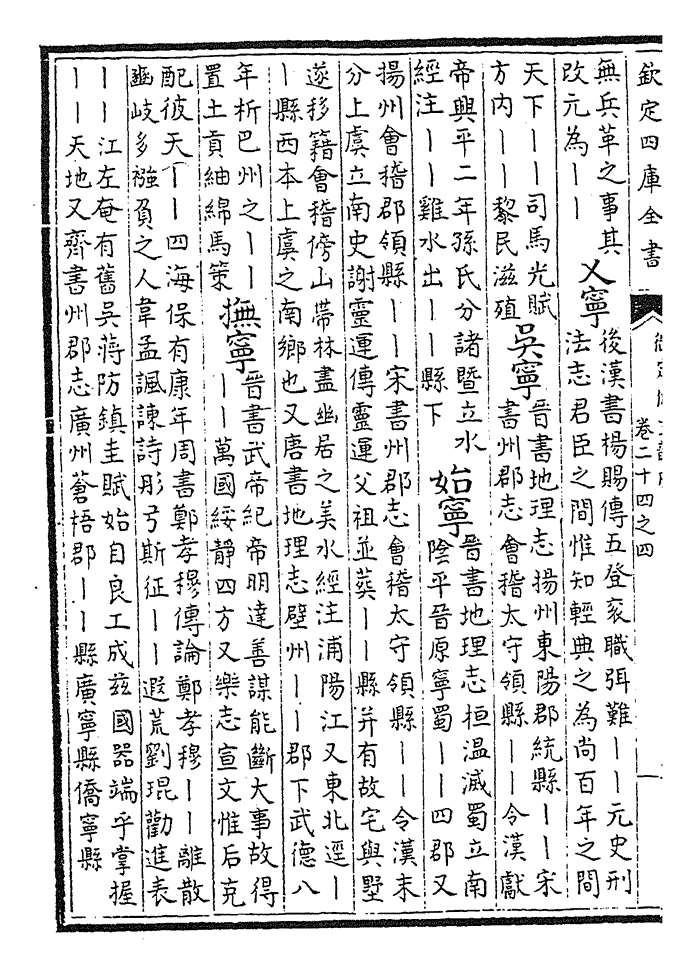 欽定四庫全書
卷二十四之四
無兵革之事其
改元為丨丨
乂寧
後漢書楊賜傳五登衮職弭難丨丨元史刑
法志君臣之間惟知輕典之為尚百年之間
天下丨丨司馬光賦
方內丨丨黎民滋殖
吳寧
晉書地理志揚州東陽郡統縣丨丨宋
書州郡志會稽太守領縣丨丨令漢獻
帝興平二年孫氏分諸暨立水
經注丨丨雞水出丨丨縣下
始寧
晉書地理志桓温滅蜀立南
陰平晉原寧蜀丨丨四郡又
揚州會稽郡領縣丨丨宋書州郡志會稽太守領縣丨丨令漢末
分上虞立南史謝靈運傳靈運父祖並葬丨丨縣并有故宅與墅
遂移籍會稽傍山帶林盡幽居之美水經注浦陽江又東北逕丨
丨縣西本上虞之南鄉也又唐書地理志壁州丨丨郡下武德八
年析巴州之丨丨
置土貢紬綿馬策
撫寧
晉書武帝紀帝明達善謀能斷大事故得
丨丨萬國綏靜四方又樂志宣文惟后克
配彼天丨丨四海保有康年周書鄭孝穆傳論鄭孝穆丨丨離散
豳岐多襁負之人韋孟諷諫詩彤弓斯征丨丨遐荒劉琨勸進表
丨丨江左奄有舊吳蔣防鎮圭賦始自良工成兹國器端乎掌握
丨丨天地又齊書州郡志廣州蒼梧郡丨丨縣廣寧縣僑寧縣